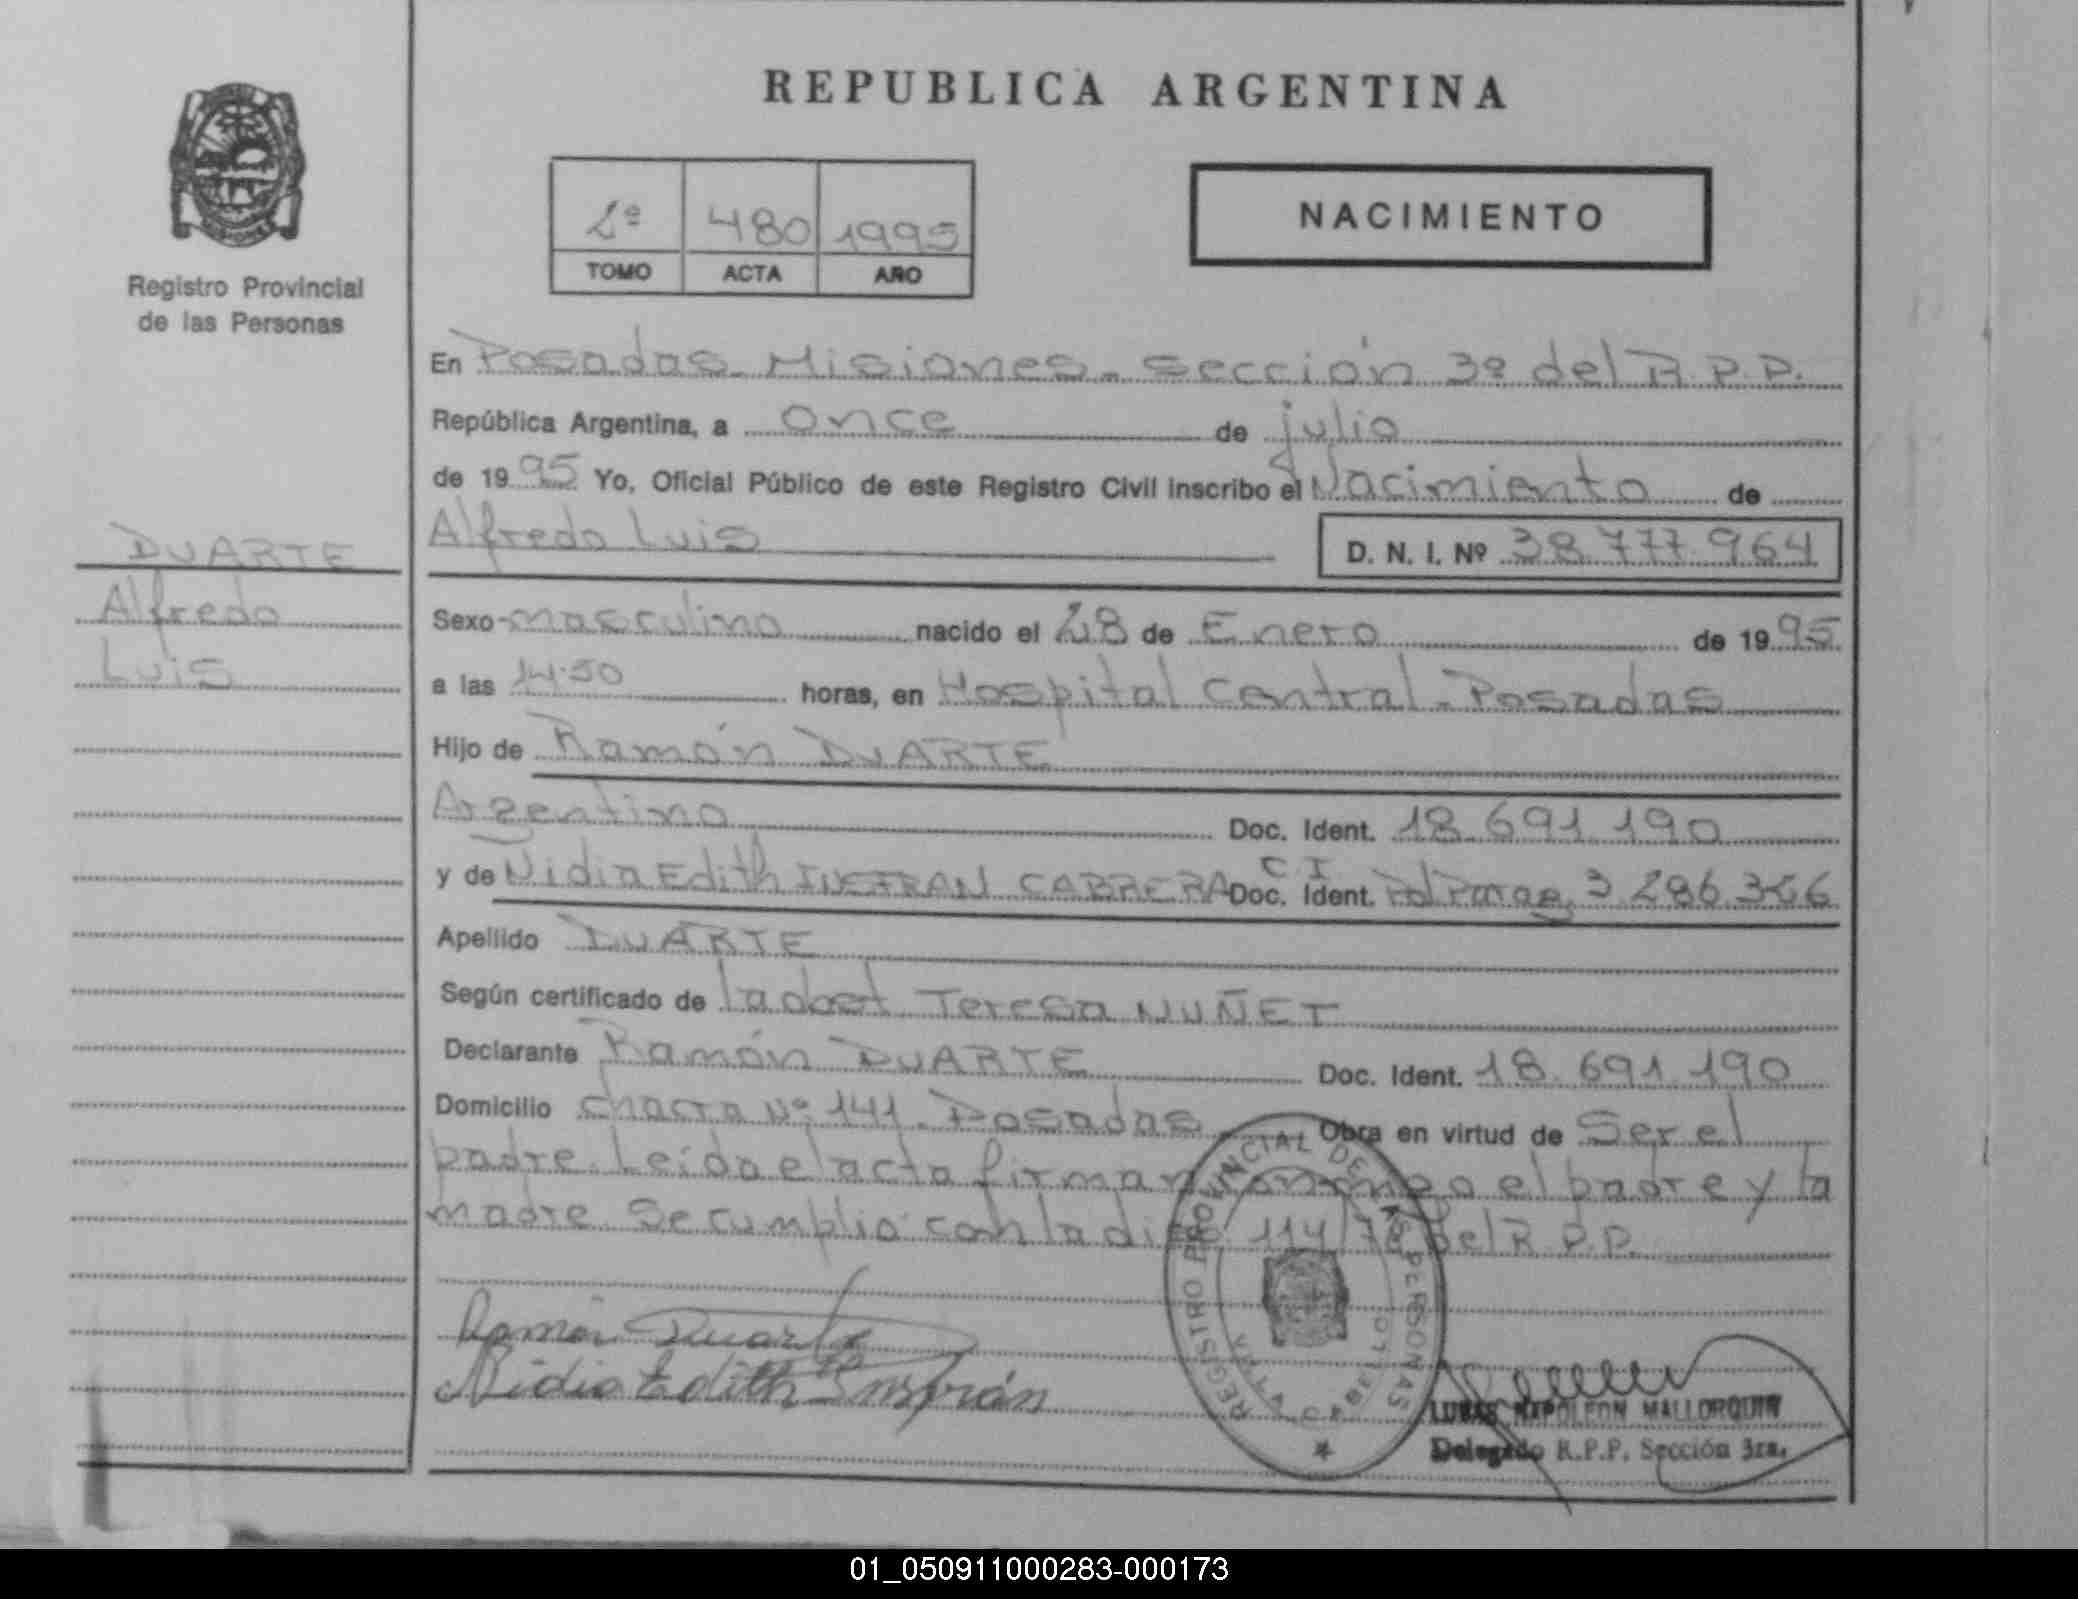 REPUBLICA ARGENTINA
Registro Provincial
de las Personas
2º 480 1995
TOMO ACTA AÑO
NACIMIENTO
En Posadas Misiones - Sección 3º del R.P.P.
República Argentina, a once de julio
de 1995 Yo, Oficial Público de este Registro Civil inscribo el Nacimiento de
Alfredo Luis D. N. I. Nº 38.777.964
DUARTE
Alfredo
Luis
Sexo masculino nacido el 28 de Enero de 1995
a las 14.50 horas, en Hospital Central - Posadas
Hijo de Ramón DUARTE
Argentino Doc. Ident. 18.691.190
y de Nidia Edith INSFRAN CABRERA Doc. Ident. C I Pol Parag. 3.286.366
Apellido DUARTE
Según certificado de Teresa NUÑEZ
Declarante Ramón DUARTE Doc. Ident. 18.691.190
Domicilio chacra Nº 141 - Posadas Obra en virtud de Ser el
padre. Leida el acta firman conmigo el padre y la
madre. Se cumplio con la disp. 114/78 del R.P.P.
Ramón Duarte
Nidia Edith Insfrán
REGISTRO PROVINCIAL DE LAS PERSONAS
LUCAS NAPOLEON MALLORQUIN
Delegado R.P.P. Sección 3ra.
01_050911000283-000173